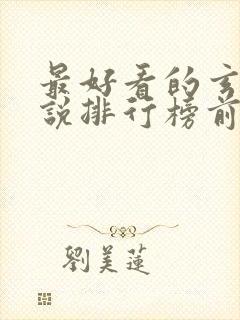 最好看的玄
說排行榜前
劉美蓮